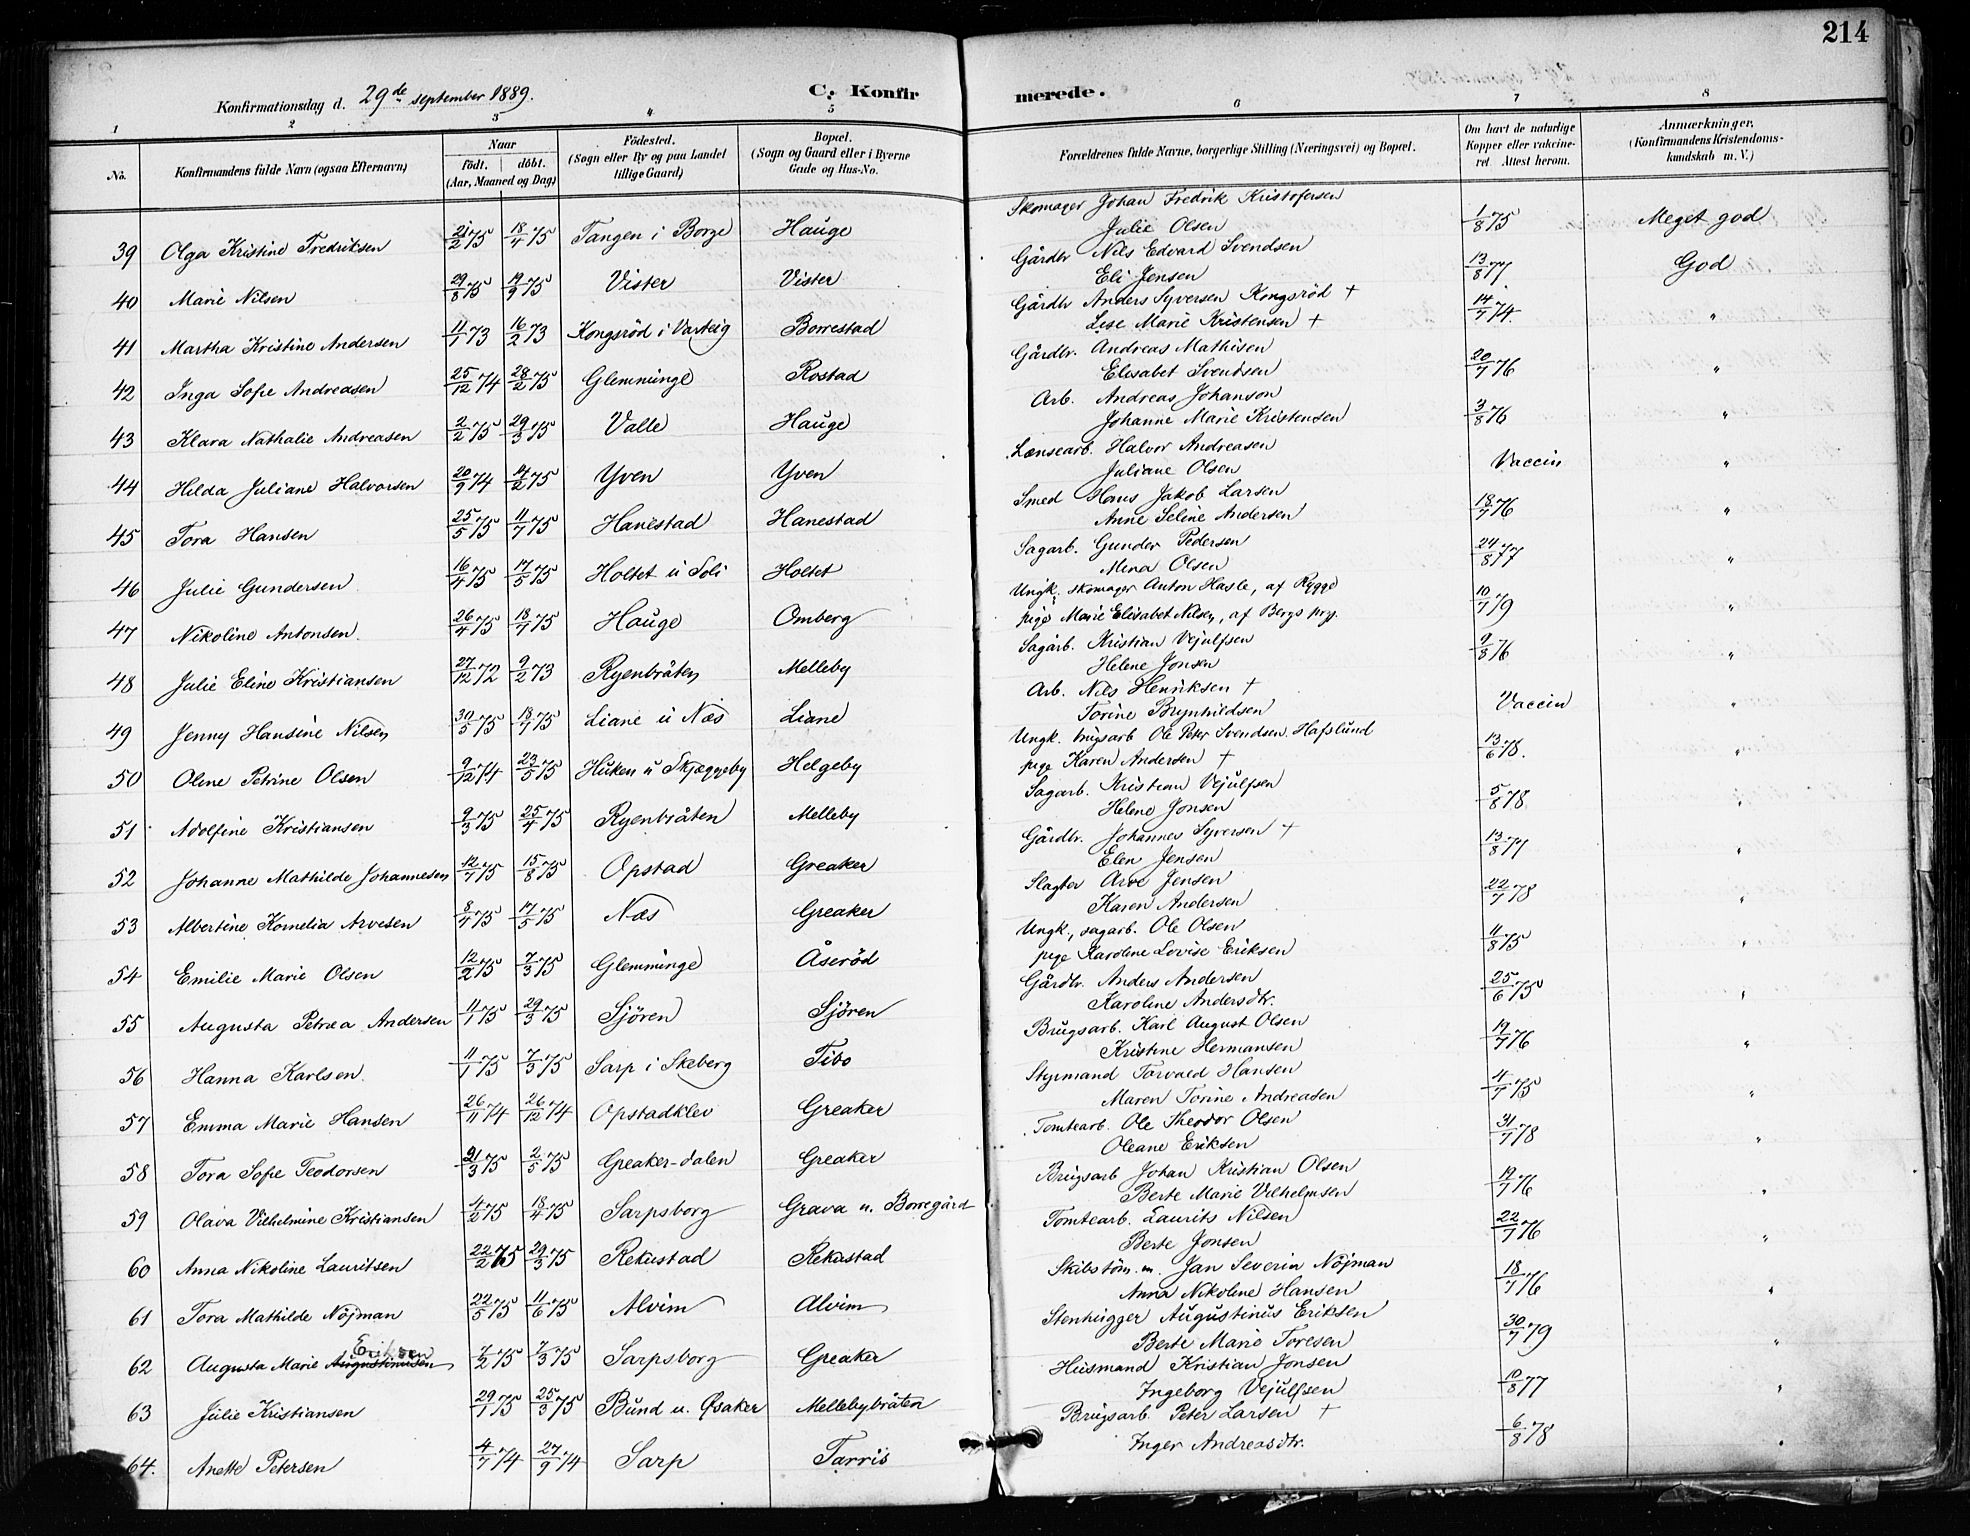 214
Konfirmationsdag d. 29de september 1889. C. Konfirmerede.
1 2 3 4 5 6 7 8
No. Konfirmandens fulde Navn (ogsaa Efternavn) Naar födt. döbt. (Aar, Maaned og Dag) Födested. (Sogn eller By og paa Landet tillige Gaard) Bopæl. (Sogn og Gaard eller i Byerne Gade og Hus-No. Forældrenes fulde Navne, borgerlige Stilling (Næringsvei) og Bopæl. Om havt de naturlige Kopper eller vakcineret. Attest herom. Anmærkninger. (Konfirmandens Kristendomskundskab m. V.)
39 Olga Kristine Fredriksen 21/2 75 18/4 75 Tangen i Borge Hauge Skomager Johan Fredrik Kristofersen Julie Olsen 1/8 75 Meget god
40 Marie Nilsen 29/8 75 19/9 75 Vister Vister Gårdbr Nils Edvard Svendsen Eli Jensen 13/8 77 God
41 Martha Kristine Andersen 11/1 73 16/2 73 Kongsröd i Varteig Borrestad Gårdbr Anders Syversen Kongsröd + Lise Marie Kristensen + 14/7 74. "
42 Inga Sofie Andreasen 25/12 74 28/2 75 Glemminge Rostad Gårdbr. Andreas Mathisen Elisabet Svendsen 20/7 76 "
43 Klara Nathalie Andreasen 2/2 75 29/3 75 Valle Hauge Arb. Andreas Johanson Johanne Marie Kristensen 3/8 76 "
44 Hilda Juliane Halvorsen 20/9 74 14/2 75 Yven Yven Lænsearb. Halvor Andreasen Juliane Olsen Vaccin "
45 Tora Hansen 25/5 75 11/7 75 Hanestad Hanestad Smed Hans Jakob Larsen Anne Seline Andersen 18/7 76 "
46 Julie Gundersen 16/4 75 17/5 75 Holtet u Soli Holtet Sagarb. Gunder Pedersen Mina Olsen 24/8 77 "
47 Nikoline Antonsen. 26/4 75 18/7 75 Hauge Omberg Ungk. skomager Anton Hasle, af Rygge pige Marie Elisabet Nilsen, af Bergs prg. 10/7 79 "
48 Julie Eline Kristiansen 27/12 72 9/2 73 Ryenbråten Melleby Sagarb. Kristian Vejulfsen Helene Jonsen 9/8 76 "
49 Jenny Hansine Nilsen 30/5 75 18/7 75 Liane u Næs Liane Arb. Nils Henriksen + Torine Brynhildsen Vaccin "
50 Oline Petrine Olsen 9/12 74 23/5 75 Huken u Skjæggeby Helgeby Ungk. brugsarb Ole Peter Svendsen. Hafslund pige Karen Andersen + 13/6 78. "
51 Adolfine Kristiansen 9/3 75 25/4 75 Ryenbråten Melleby Sagarb. Kristian Vejulfsen Helene Jonsen 5/8 78 "
52 Johanne Mathilde Johannesen 12/7 75 15/8 75 Opstad Greaker Gårdbr. Johannes Syversen + Elen Jensen 13/8 77 "
53 Albertine Kornelia Arvesen 8/4 75 17/5 75 Næs Greaker Slagter Arve Jensen Karen Andersen 22/7 78 "
54 Emilie Marie Olsen 12/2 75 7/3 75 Glemminge Åserød Ungk., sagarb. Ole Olsen pige Karoline Lovise Eriksen 11/8 75 "
55 Augusta Petræa Andersen 11/1 75 29/3 75 Sjören Sjören Gårdbr. Anders Andersen Karoline Andersdtr. 25/6 75 "
56 Hanna Karlsen. 11/1 75 7/3 75 Sarp i Skeberg Tibo Brugsarb. Karl August Olsen Kristine Hermansen 19/7 76 "
57 Emma Marie Hansen 26/11 74 26/12 74 Opstadklev Greaker Styrmand Torvald Hansen Maren Torine Andreasen 4/7 75 "
58 Tora Sofie Teodorsen 21/3 75 2/5 75 Greaker-dalen Greaker Tomtearb. Ole Theodor Olsen Oleane Eriksen 31/7 78 "
59 Olava Vilhelmine Kristiansen 4/2 75 18/4 75 Sarpsborg Grava u. Borregård Brugsarb Johan Kristian Olsen Berte Marie Vilhelmsen 19/7 76 "
60 Anna Nikoline Lauritsen 22/2 75 29/3 75 Rekustad Rekustad Tomtearb. Laurits Nilsen Berte Jonsen 22/7 76 "
61 Tora Mathilde Nöjman 22/5 75 11/6 75 Alvim Alvim Skibstöm. m. Jan Severin Nöjman Anna Nikoline Hansen 18/7 76 "
62 Augusta Marie Augustinusen Eriksen 7/2 75 7/3 75 Sarpsborg Greaker Stenhugger Augustinus Eriksen Berte Marie Toresen 30/7 79 "
63 Julie Kristiansen 29/1 75 25/3 75 Bund u. Øsaker Mellebybråten Husmand Kristian Jonsen Ingeborg Vejulfsen 10/8 77 "
64. Anette Petersen 4/7 74 27/9 74 Sarp Tarris Brugsarb. Peter Larsen + Inger Andreasdtr. 6/8 78 "